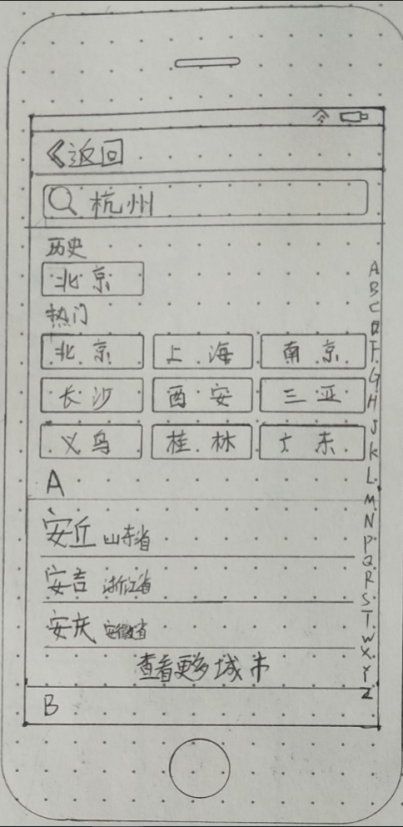 《返回
杭州
历史
北京
热门
北京 上海 南京
长沙 西安 三亚
义乌 桂林
A
安丘 山东省
安吉 浙江省
安庆 安徽省
查看更多城市
B
A
B
C
F
G
H
J
K
L
M
N
P
Q
R
S
T
W
X
Y
Z